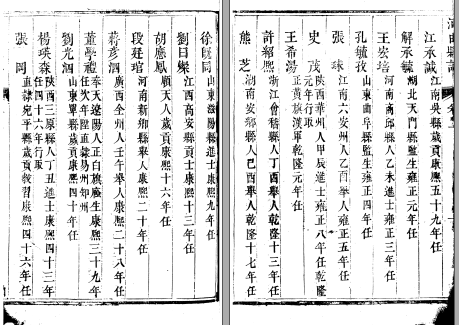 江承諴 江南吳縣歲貢康熙五十九年任
解承毓 湖北天門縣監生雍正元年任
王宏培 河南商邱縣人乙未進士雍正三年任
孔毓 山東曲阜縣監生雍正四年任
張 江南六安州人乙酉舉人雍正五年任
史茂 陝西華州人甲辰進士雍正八年任乾隆
元年行取
王希 正黃旗漢軍乾隆元年任
許紹 江會稽縣人丁酉舉人乾隆十三年任
熊芝 湖南安鄉縣人己酉舉人乾隆十七年任
徐 同 山東 陽縣進士康熙九年任
劉日燦 江西高安縣貢士康熙 年任
胡應鳳 順天人歲貢康熙十六年任
段廷 河南新鄉縣舉人康熙二十年任
蔣彥泗 廣西全州人壬午舉人康熙二十八年任
董學禮 奉天遼陽人正白旗廕生康熙三十九年
任次年陞直隸易州知州
劉光泗 山東章邱縣歲貢康熙四十年任
楊瑛森 陝西三原縣人丁丑進士康熙四十三年
任四十六年行取
張岡 直隸宛平縣歲貢教習康熙四十六年任